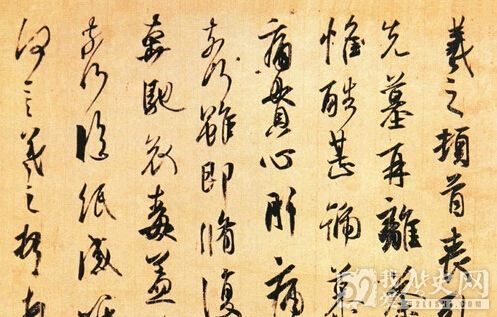 羲之頓首喪
先墓再離荼
惟酷甚號慕
痛貫心肝痛
奈何雖即脩復
奔馳哀毒益
奈何臨紙感哽
何言羲之頓首